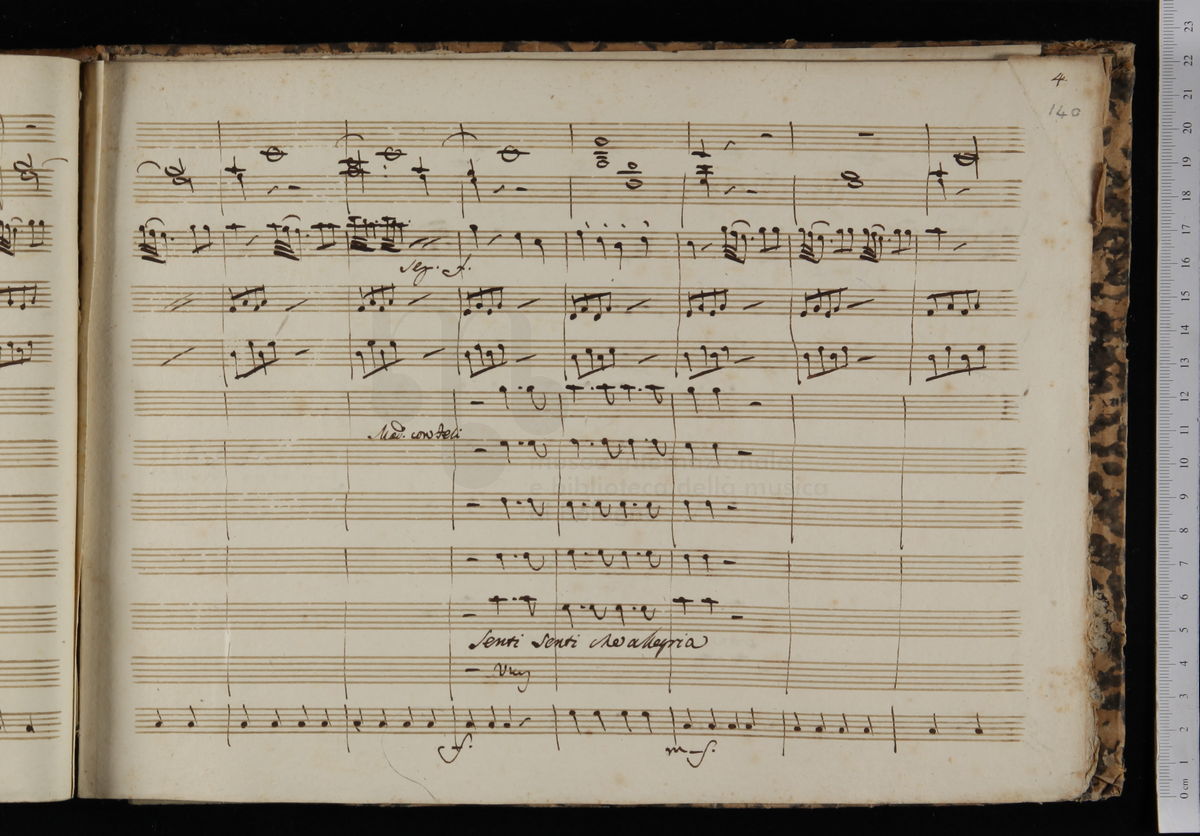 4.
140
Seg. f.
Senti Senti che allegria
Museo internazionale
e biblioteca della musica
m f.
f.
0 cm 1 2 3 4 5 6 7 8 9 10 11 12 13 14 15 16 17 18 19 20 21 22 23